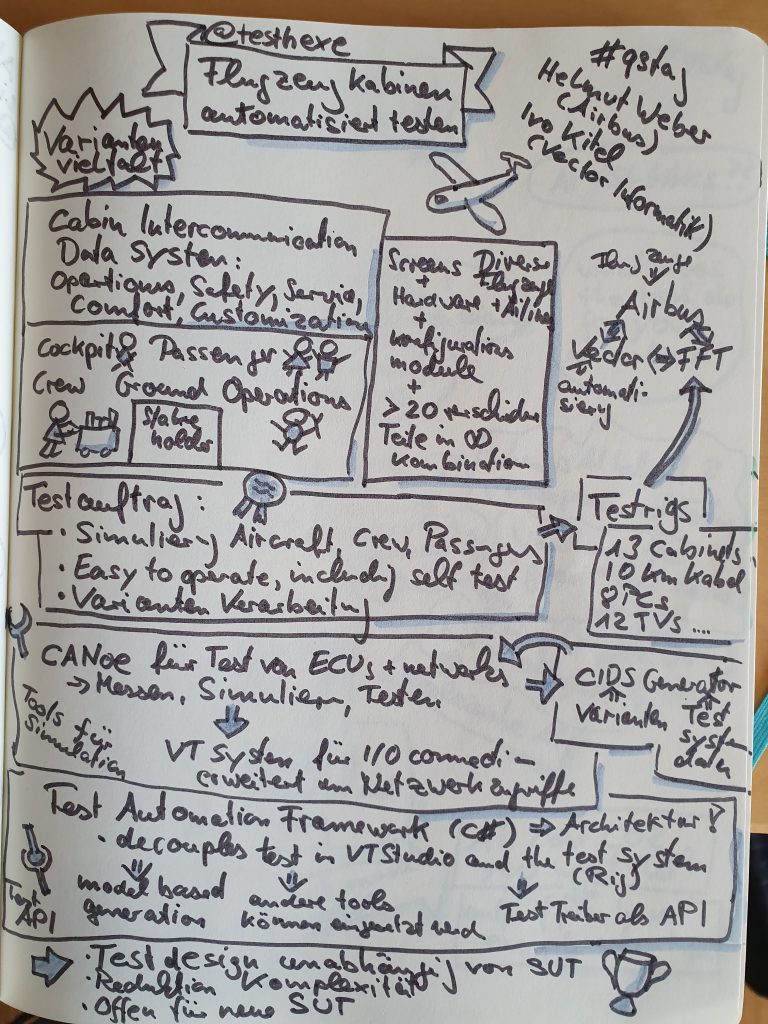 @testhexe
Flugzeugkabinen
automatisiert testen
#qstag
Helmut Weber
(Airbus)
Ivo Kitel
(Vector Informatik)
Varianten
vielfalt
Cabin Intercommunication
Data System:
Operations, Safety, Service,
Comfort, Customization
Cockpit Passenger
Crew Ground Operations
Stakeholder
Screens Diverse
+ Flugzeuge
Hardware + Airline
+
Konfigurations
module
+
> 20 verschiedene
Teile in ∞
Kombination
Flugzeuge
Airbus
Vector ⇔ FFT
automatisierung
Testauftrag:
· Simulierung Aircraft, Crew, Passengers
· Easy to operate, including self test
· Varianten Verarbeitung
Testrigs
13 Cabinets
10 km Kabel
8 PCs
12 TVs ....
CANoe für Test von ECUs + networks
→ Messen, Simulieren, Testen
Tools für
Simulation
VT System für I/O connecti-
erweitert um Netzwerkzugriffe
CIDS Generator
Varianten
Test
system
daten
Test Automation Framework (C#) ⇒ Architektur!
· decouples test in VTStudio and the test system
(Rig)
Test
API
model based
generation
andere tools
können eingesetzt werd
Test Treiber als API
· Testdesign unabhängig von SUT
· Reduktion Komplexität
· Offen für neue SUT